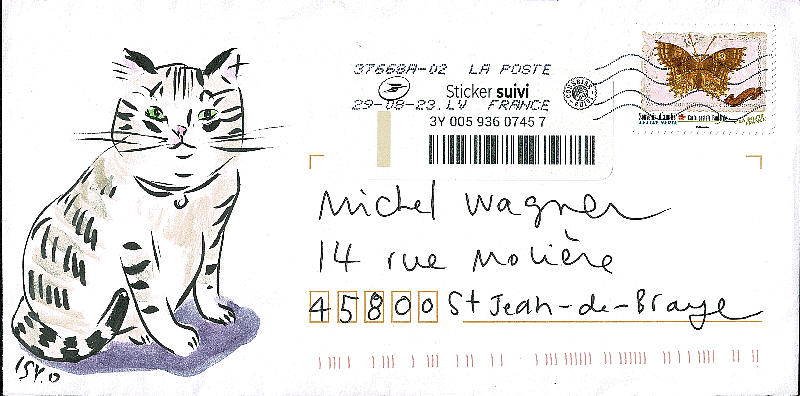 37668A-02 LA POSTE
Sticker suivi
29-08-23.LV FRANCE
3Y 005 936 0745 7
Michel Wagner
14 rue Molière
45800 St Jean-de-Braye
ISY.O